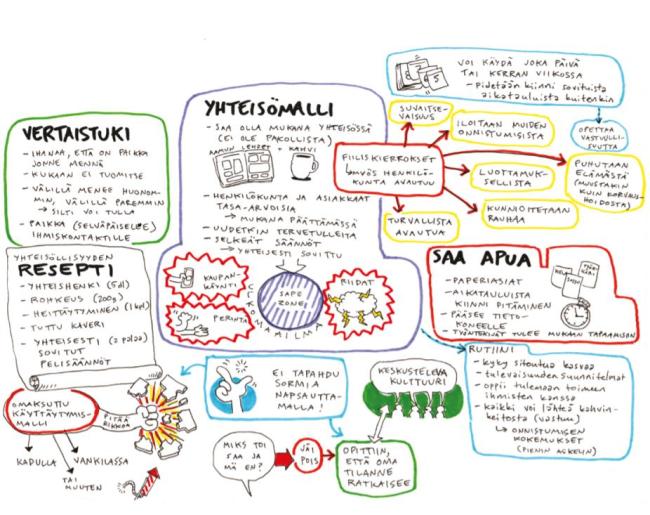 VERTAISTUKI
- IHANAA, ETTÄ ON PAIKKA
JONNE MENNÄ
- KUKAAN EI TUOMITSE
- VÄLILLÄ MENEE HUONOM-
MIN, VÄLILLÄ PAREMMIN
→ SILTI VOI TULLA
- PAIKKA (SELVÄPÄISELLE)
IHMISKONTAKTILLE
YHTEISÖMALLI
- SAA OLLA MUKANA YHTEISÖSSÄ
(EI OLE PAKOLLISTA)
AAMUN LEHDET + KAHVI
- HENKILÖKUNTA JA ASIAKKAAT
TASA-ARVOISIA
→ MUKANA PÄÄTTÄMÄSSÄ
- UUDETKIN TERVETULLEITA
- SELKEÄT SÄÄNNÖT
→ YHTEISESTI SOVITTU
KAUPAN-
KÄYNTI
PERINTÄ
SAFE
ZONE
RIIDAT
ULKOMAAILMA
VOI KÄYDÄ JOKA PÄIVÄ
TAI KERRAN VIIKOSSA
- Pidetään kiinni sovituista
aikatauluista kuitenkin
OPETTAA
VASTUULLI-
SUUTTA
SUVAITSE-
VAISUUS
ILOITAAN MUIDEN
ONNISTUMISISTA
FIILISKIERROKSET
myös HENKILÖ-
KUNTA AVAUTUU
LUOTTAMUK-
SELLISTA
PUHUTAAN
ELÄMÄSTÄ
(MUUSTAKIN
KUIN KORVAUS-
HOIDOSTA)
KUNNIOITETAAN
RAUHAA
TURVALLISTA
AVAUTUA
SAA APUA
- PAPERIASIAT
- AIKATAULUISTA
KIINNI PITÄMINEN
- PÄÄSEE TIETO-
KONEELLE
- TYÖNTEKIJÄT TULEE MUKAAN TAPAAMISIIN
KELA
YHTEISÖLLISYYDEN
RESEPTI
- YHTEISHENKI (5dl)
- ROHKEUS (200g)
- HEITTÄYTYMINEN (1 kpl)
- TUTTU KAVERI
- YHTEISESTI
SOVITUT
PELISÄÄNNÖT
OMAKSUTTU
KÄYTTÄYTYMIS-
MALLI
PITÄÄ
RIKKOA
KADULLA
VANKILASSA
TAI
MUUTEN
EI TAPAHDU
SORMIA
NAPSAUTTA-
MALLA!
KESKUSTELEVA
KULTTUURI
MIKS TOI
SAA JA
MÄ EN?
JÄI
POIS
OPITTIIN,
ETTÄ OMA
TILANNE
RATKAISEE
RUTIINI
- kyky sitoutua kasvaa
- tulevaisuuden suunnitelmat
- oppii tulemaan toimeen
ihmisten kanssa
- kaikki voi lähteä kahvin-
keitosta (vastuu)
↳ ONNISTUMISEN
KOKEMUKSET
(PIENIN ASKELIN)